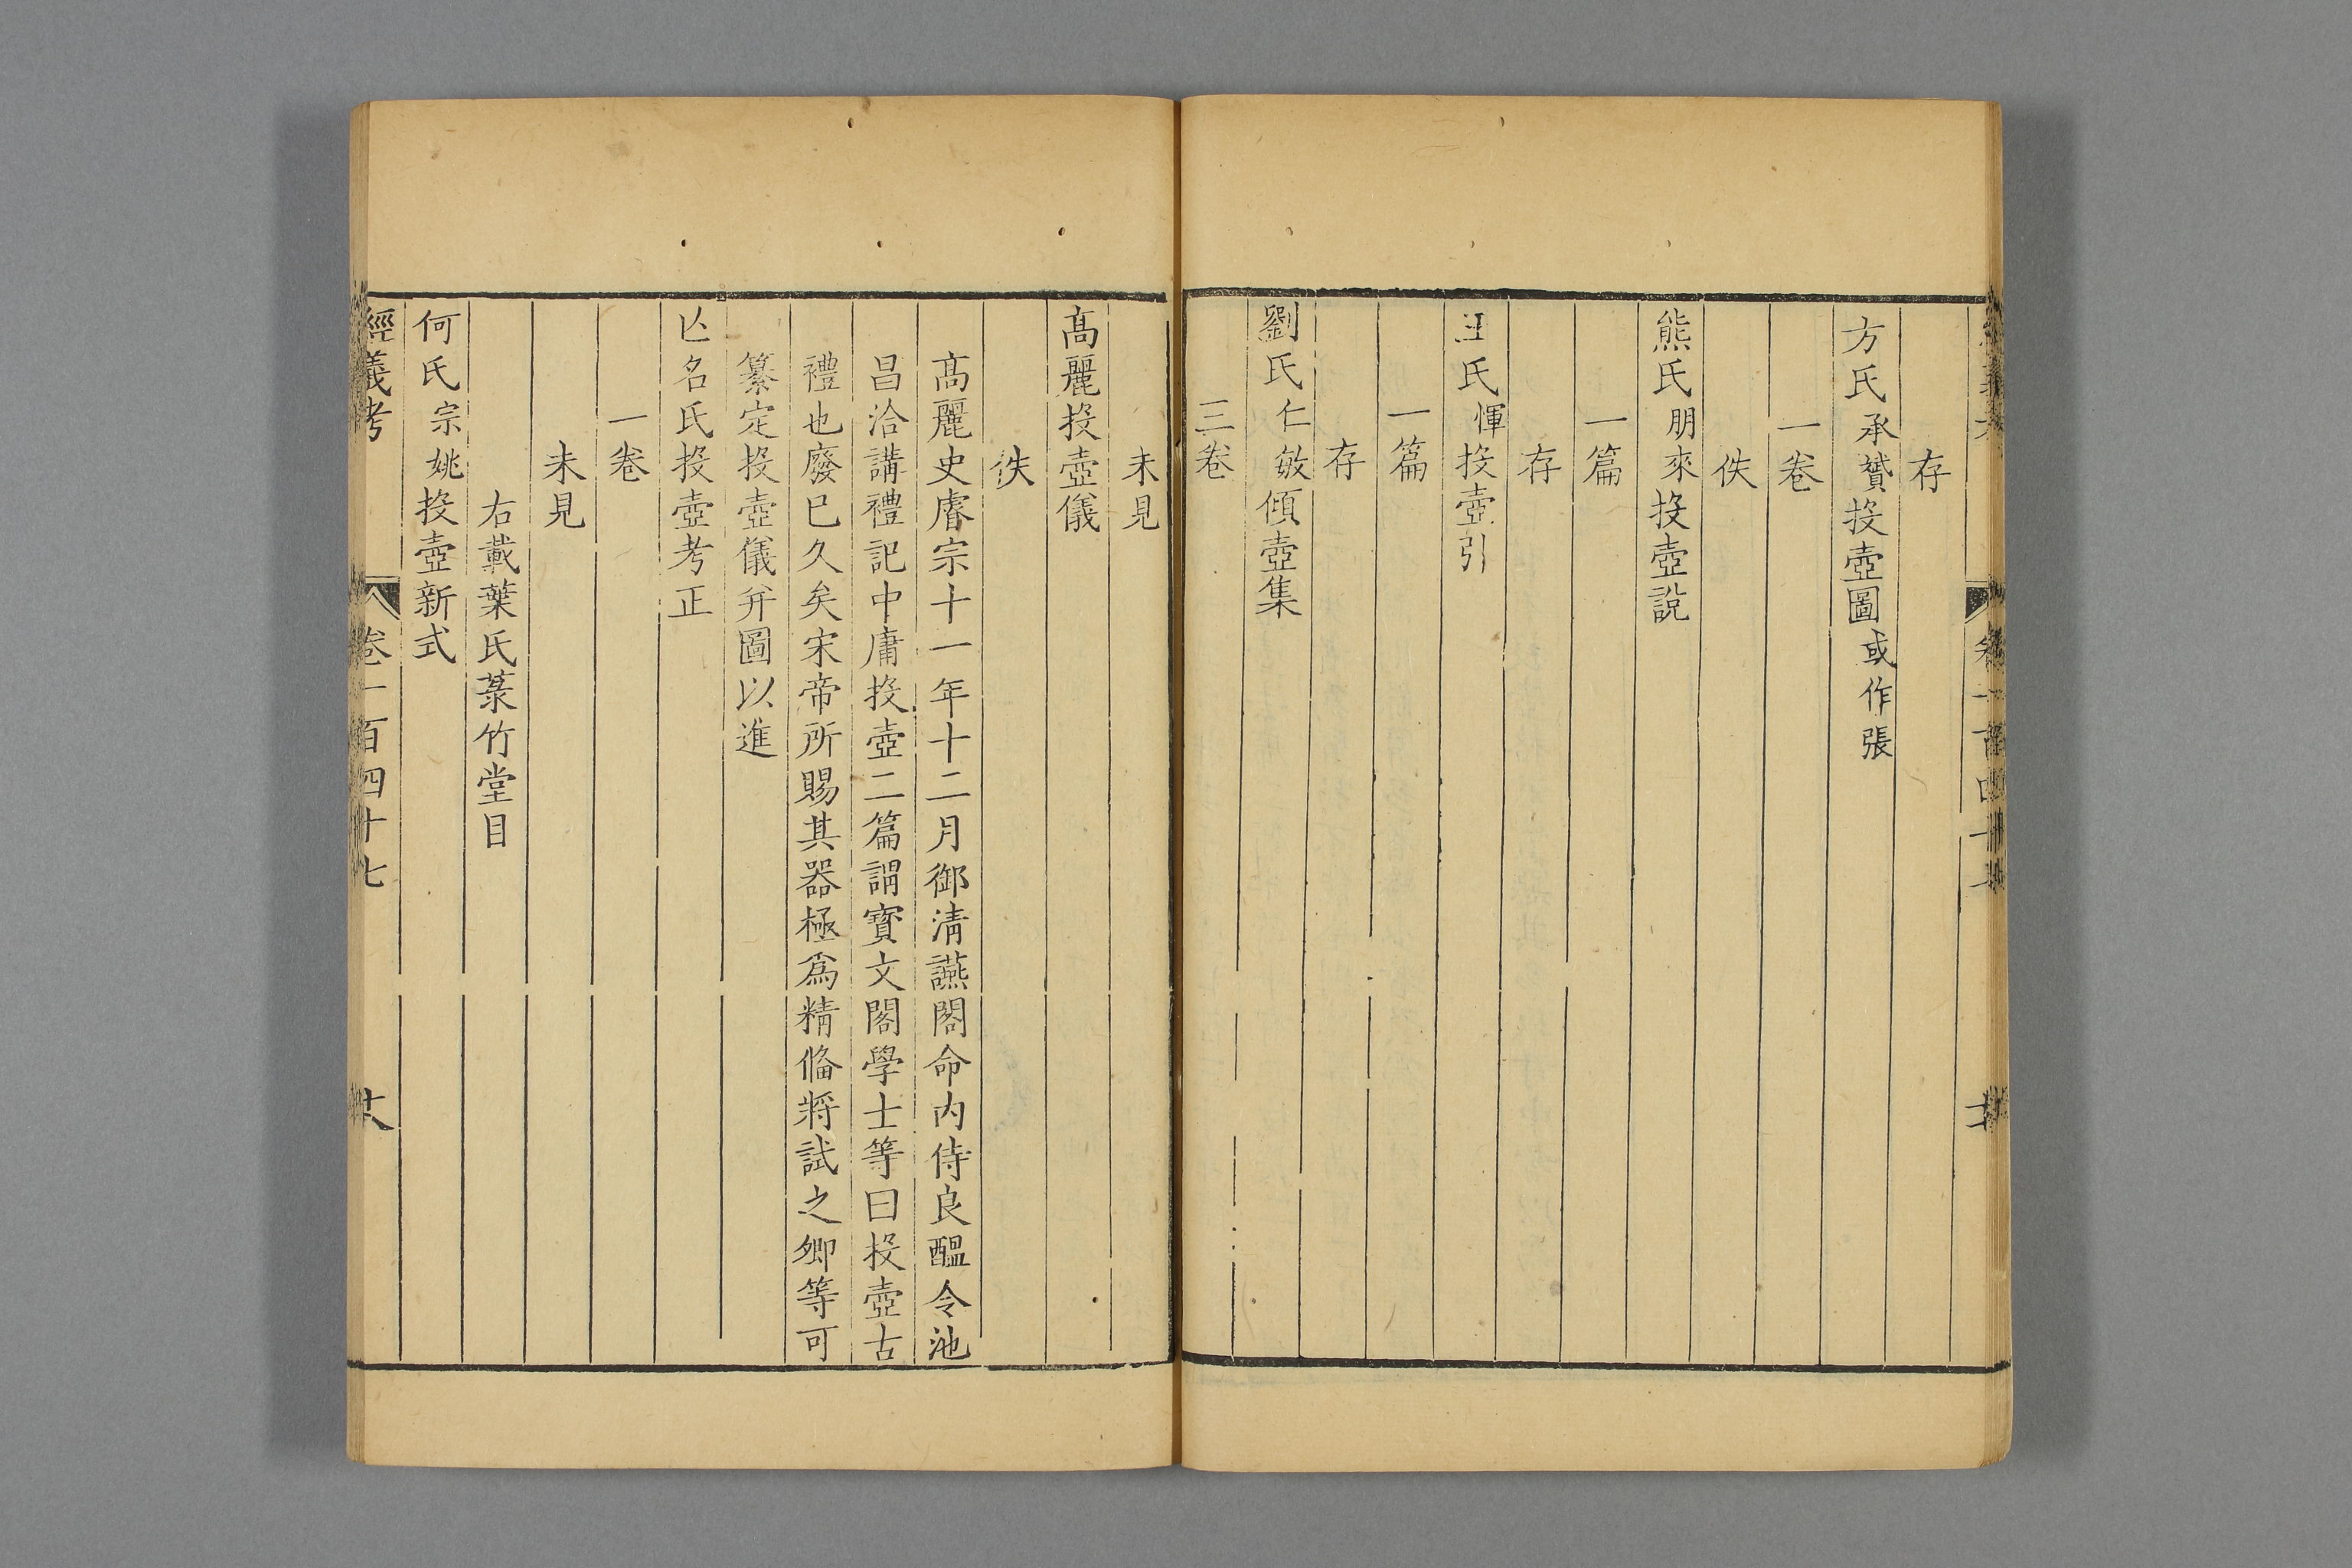 存
方氏承贇投壺圖或作張
一卷
佚
熊氏朋來投壺説
一篇
存
王氏惲投壺引
一篇
存
劉氏仁敏傾壺集
三卷
未見
高麗投壺儀
佚
高麗史睿宗十一年十二月御淸讌閣命内侍良醞令池
昌洽講禮記中庸投壺二篇謂寳文閣學士等曰投壺古
禮也廢已久矣宋帝所賜其器極爲精偹將試之卿等可
纂定投壺儀并圖以進
亾名氏投壺考正
一卷
未見
右載葉氏菉竹堂目
何氏宗姚投壺新式
經義考
卷一百四十七